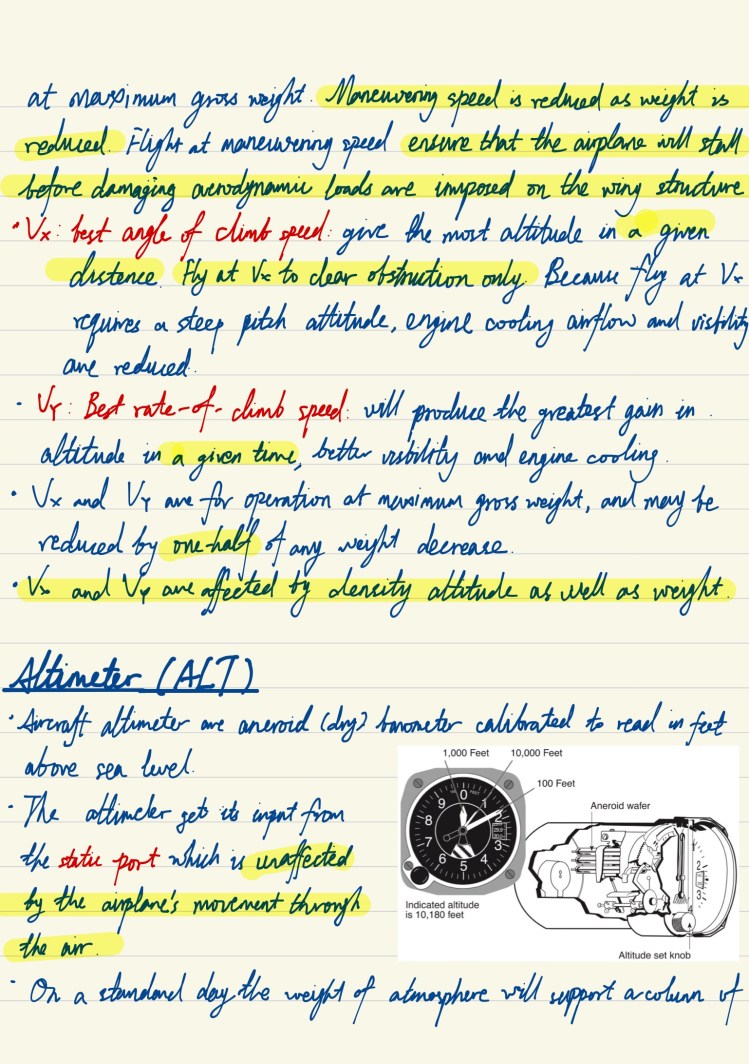 at maximum gross weight. Maneuvering speed is reduced as weight is
reduced. Flight at maneuvering speed ensure that the airplane will stall
before damaging aerodynamic loads are imposed on the wing structure
• Vx: best angle of climb speed: give the most altitude in a given
distence. Fly at Vx to clear obstruction only. Because fly at Vx
requires a steep pitch attitude, engine cooling airflow and visibility
are reduced.
• VY: Best rate-of-climb speed: will produce the greatest gain in
altitude in a given time, better visibility and engine cooling.
• Vx and VY are for operation at maximum gross weight, and may be
reduced by one-half of any weight decrease.
• Vx and Vy are affected by density altitude as well as weight.
Altimeter (ALT)
• Aircraft altimeter are aneroid (dry) barometer calibrated to read in feet
above sea level.
• The altimeter gets its input from
the static port which is unaffected
by the airplane's movement through
the air.
1,000 Feet
10,000 Feet
100 Feet
0
1
2
3
4
5
6
7
8
9
Aneroid wafer
Indicated altitude
is 10,180 feet
Altitude set knob
• On a standard day, the weight of atmosphere will support a column of